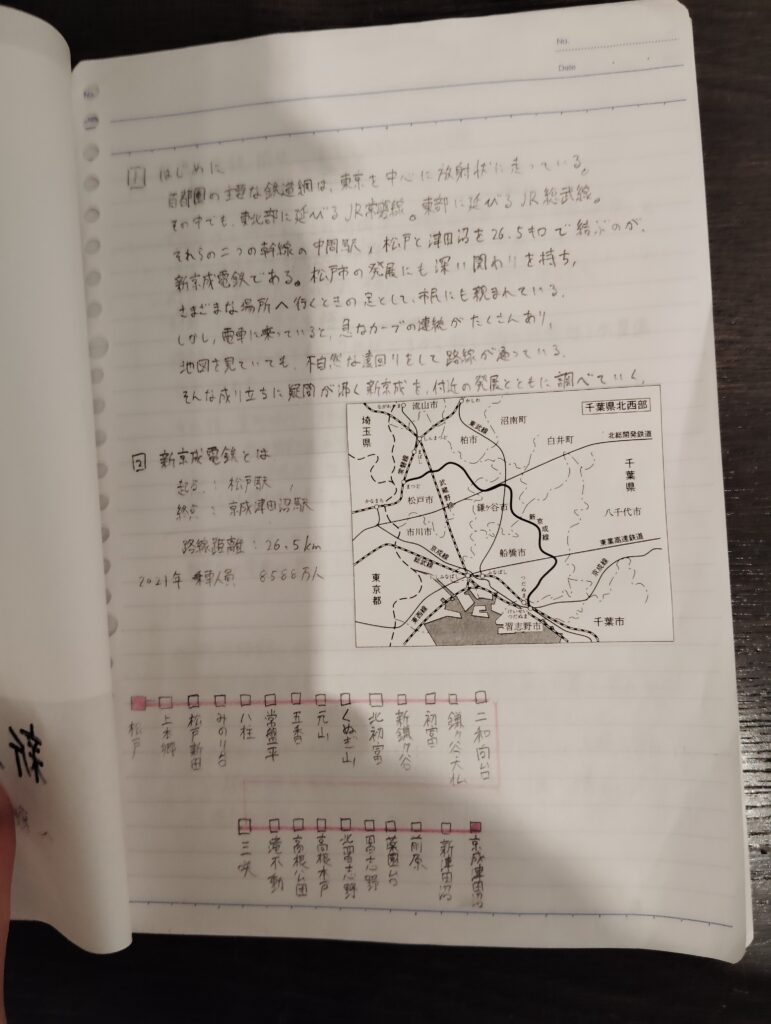 No.
Date
1 はじめに
首都圏の主要な鉄道網は、東京を中心に放射状に走っている。
その中でも、東北部に延びるJR常磐線。東部に延びるJR総武線。
それらの二つの幹線の中間駅，松戸と津田沼を26.5キロで結ぶのが、
新京成電鉄である。松戸市の発展にも深い関わりを持ち，
さまざまな場所へ行くときの足として、市民にも親まれている。
しかし，電車に乗っていると，急なカーブの連続がたくさんあり，
地図を見ていても，不自然な遠回りをして路線が通っている。
そんな成り立ちに疑問が湧く新京成を，付近の発展とともに調べていく。
千葉県北西部
埼玉県
ながれやま
流山市
かしわ
沼南町
柏市
東武線
白井町
北総開発鉄道
常磐線
武蔵野線
まつど
松戸市
かなまち
鎌ヶ谷市
新京成線
千葉県
八千代市
市川市
船橋市
東葉高速鉄道
京成線
総武線
東京都
東西線
つだぬま
けいせい
つだぬま
習志野市
京成線
千葉市
2 新京成電鉄とは
起点：松戸駅，
終点：京成津田沼駅
路線距離：26.5km
2021年 乗車人員 8588万人
松戸
上本郷
松戸新田
みのり台
八柱
常盤平
五香
元山
くぬぎ山
北初富
新鎌ヶ谷
初富
鎌ヶ谷大仏
二和向台
三咲
滝不動
高根公団
高根木戸
北習志野
習志野
薬園台
前原
新津田沼
京成津田沼
新